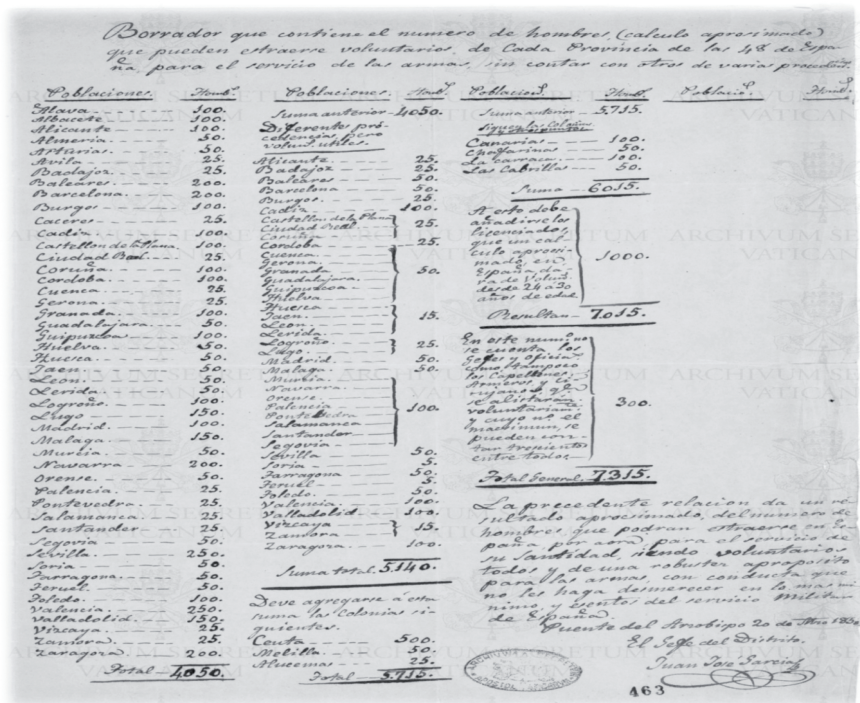 Borrador que contiene el numero de hombres, (calculo aprosimado)
que pueden estraerse voluntarios, de Cada Provincia de las 48 de Espa-
ña, para el servicio de las armas, sin contar con otros de varias
Poblaciones. Homb.s
Alava 100.
Albacete 100.
Alicante 100.
Almeria 50.
Asturias 50.
Avila 25.
Badajoz 25.
Baleares 200.
Barcelona 200.
Burgos 100.
Caceres 25.
Cadiz 100.
Castellon de la Plana 100.
Ciudad Real 25.
Coruña 100.
Cordoba 100.
Cuenca 25.
Gerona 25.
Granada 100.
Guadalajara 50.
Guipuzcoa 100.
Huelva 50.
Huesca 50.
Jaen 50.
Leon 50.
Lerida 50.
Logroño 100.
Lugo 150.
Madrid 100.
Malaga 150.
Murcia 50.
Navarra 200.
Orense 50.
Palencia 25.
Pontevedra 25.
Salamanca 25.
Santander 25.
Segovia 50.
Sevilla 250.
Soria 50.
Tarragona 50.
Teruel 50.
Toledo 100.
Valencia 250.
Valladolid 150.
Vizcaya 25.
Zamora 25.
Zaragoza 200.
Total 4050.
Poblaciones. Homb.s
Suma anterior 4050.
Diferentes pro
cedencias, pero
volun.s utiles.
Alicante 25.
Badajoz 25.
Baleares 50.
Barcelona 50.
Burgos 25.
Cadiz 100.
Castellon de la Plana
Ciudad Real 25.
Coruña
Cordoba 25.
Cuenca
Gerona
Granada 50.
Guadalajara
Guipuzcoa
Huelva
Huesca
Jaen 15.
Leon
Lerida
Logroño 25.
Lugo
Madrid 50.
Malaga 50.
Murcia
Navarra
Orense
Palencia 100.
Pontevedra
Salamanca
Santander
Segovia
Sevilla 50.
Soria 5.
Tarragona 50.
Teruel 5.
Toledo 50.
Valencia 100.
Valladolid 100.
Vizcaya 15.
Zamora
Zaragoza 100.
Suma total 5140.
Deve agregarse á esta
suma las Colonias si-
guientes.
Ceuta 500.
Melilla 50.
Alucemas 25.
Total 5.715.
Poblacion.s Homb.s
Suma anterior 5.715.
Siguen las Colonias
Canarias 100.
Chafarinas 50.
La Carraca 100.
Las Cabrillas 50.
Suma 6015.
A esto debe
añadirse los
licenciados
que un cal-
culo aprosi-
mado, en
España, da
ra de volun.s
desde 24 a 30
años de edad
1000.
Resultan 7.015.
En este numero no
se cuenta los
Gefes y oficia.s
como tampoco
los Capellanes
Armeros y Ci-
rujanos, q.e
se alistarán
voluntariam.te
y cuyo n.o el
maximum, se
pueden con-
tar trescientos
entre todos
300.
Total General. 7.315.
La precedente relacion da un re-
sultado aprosimado, del numero de
hombres, que podran straerse en Es-
paña, para el servicio de
su Santidad, siendo voluntarios
todos y de una robustez aproposito
para las armas, con conducta que
no les haga desmerecer en lo mas mi
nimo, y esentos del servicio militar
de España.
Puente del Arzobispo 20 de
El Gefe del Distrito.
Juan Jose Garcia
Poblacio.s Homb.s
463
ARCHIVUM SECRETUM
VATICANUM